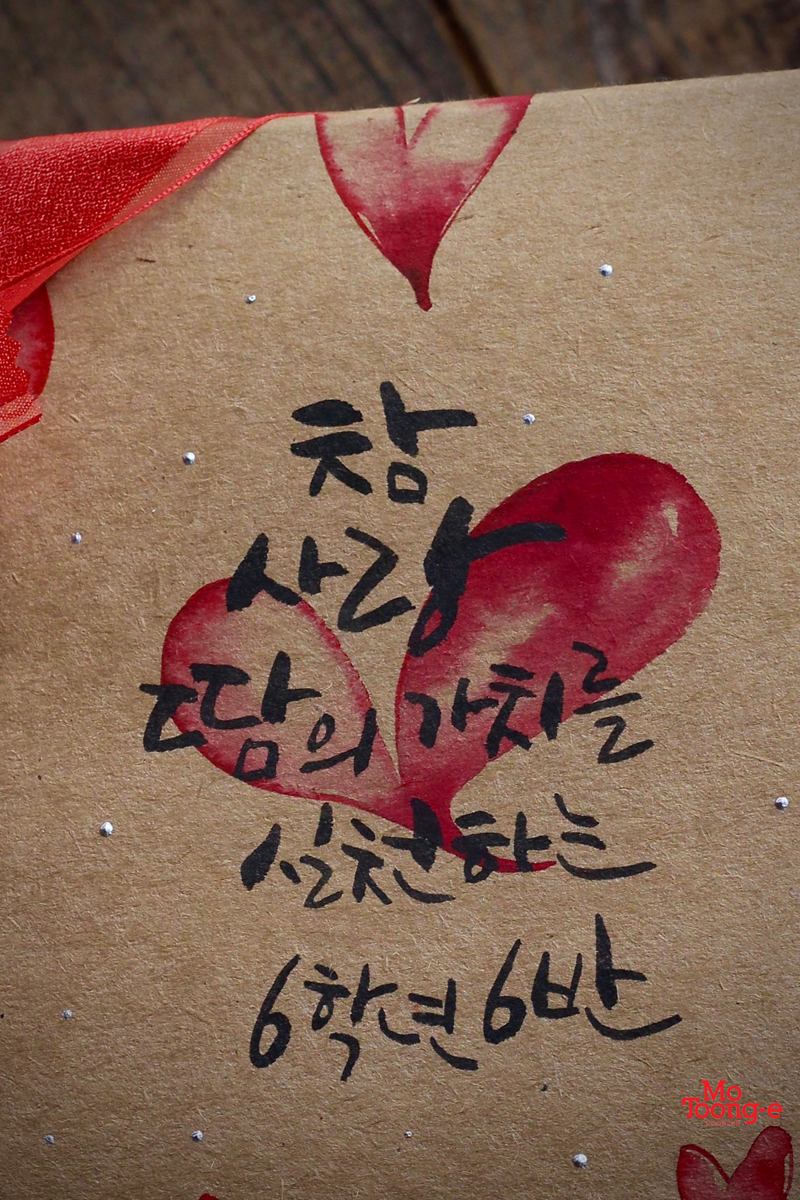 참
사랑
땀의 가치를
실천하는
6학년 6반
Mo
Toong-e